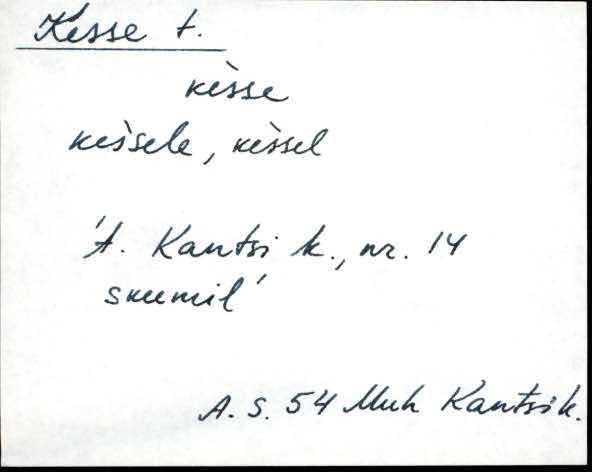 Kesse t.
kèsse
kèssele, kèssel
't. Kantsi k., nr. 14
suumil'
A. S. 54 Muh Kantsi k.